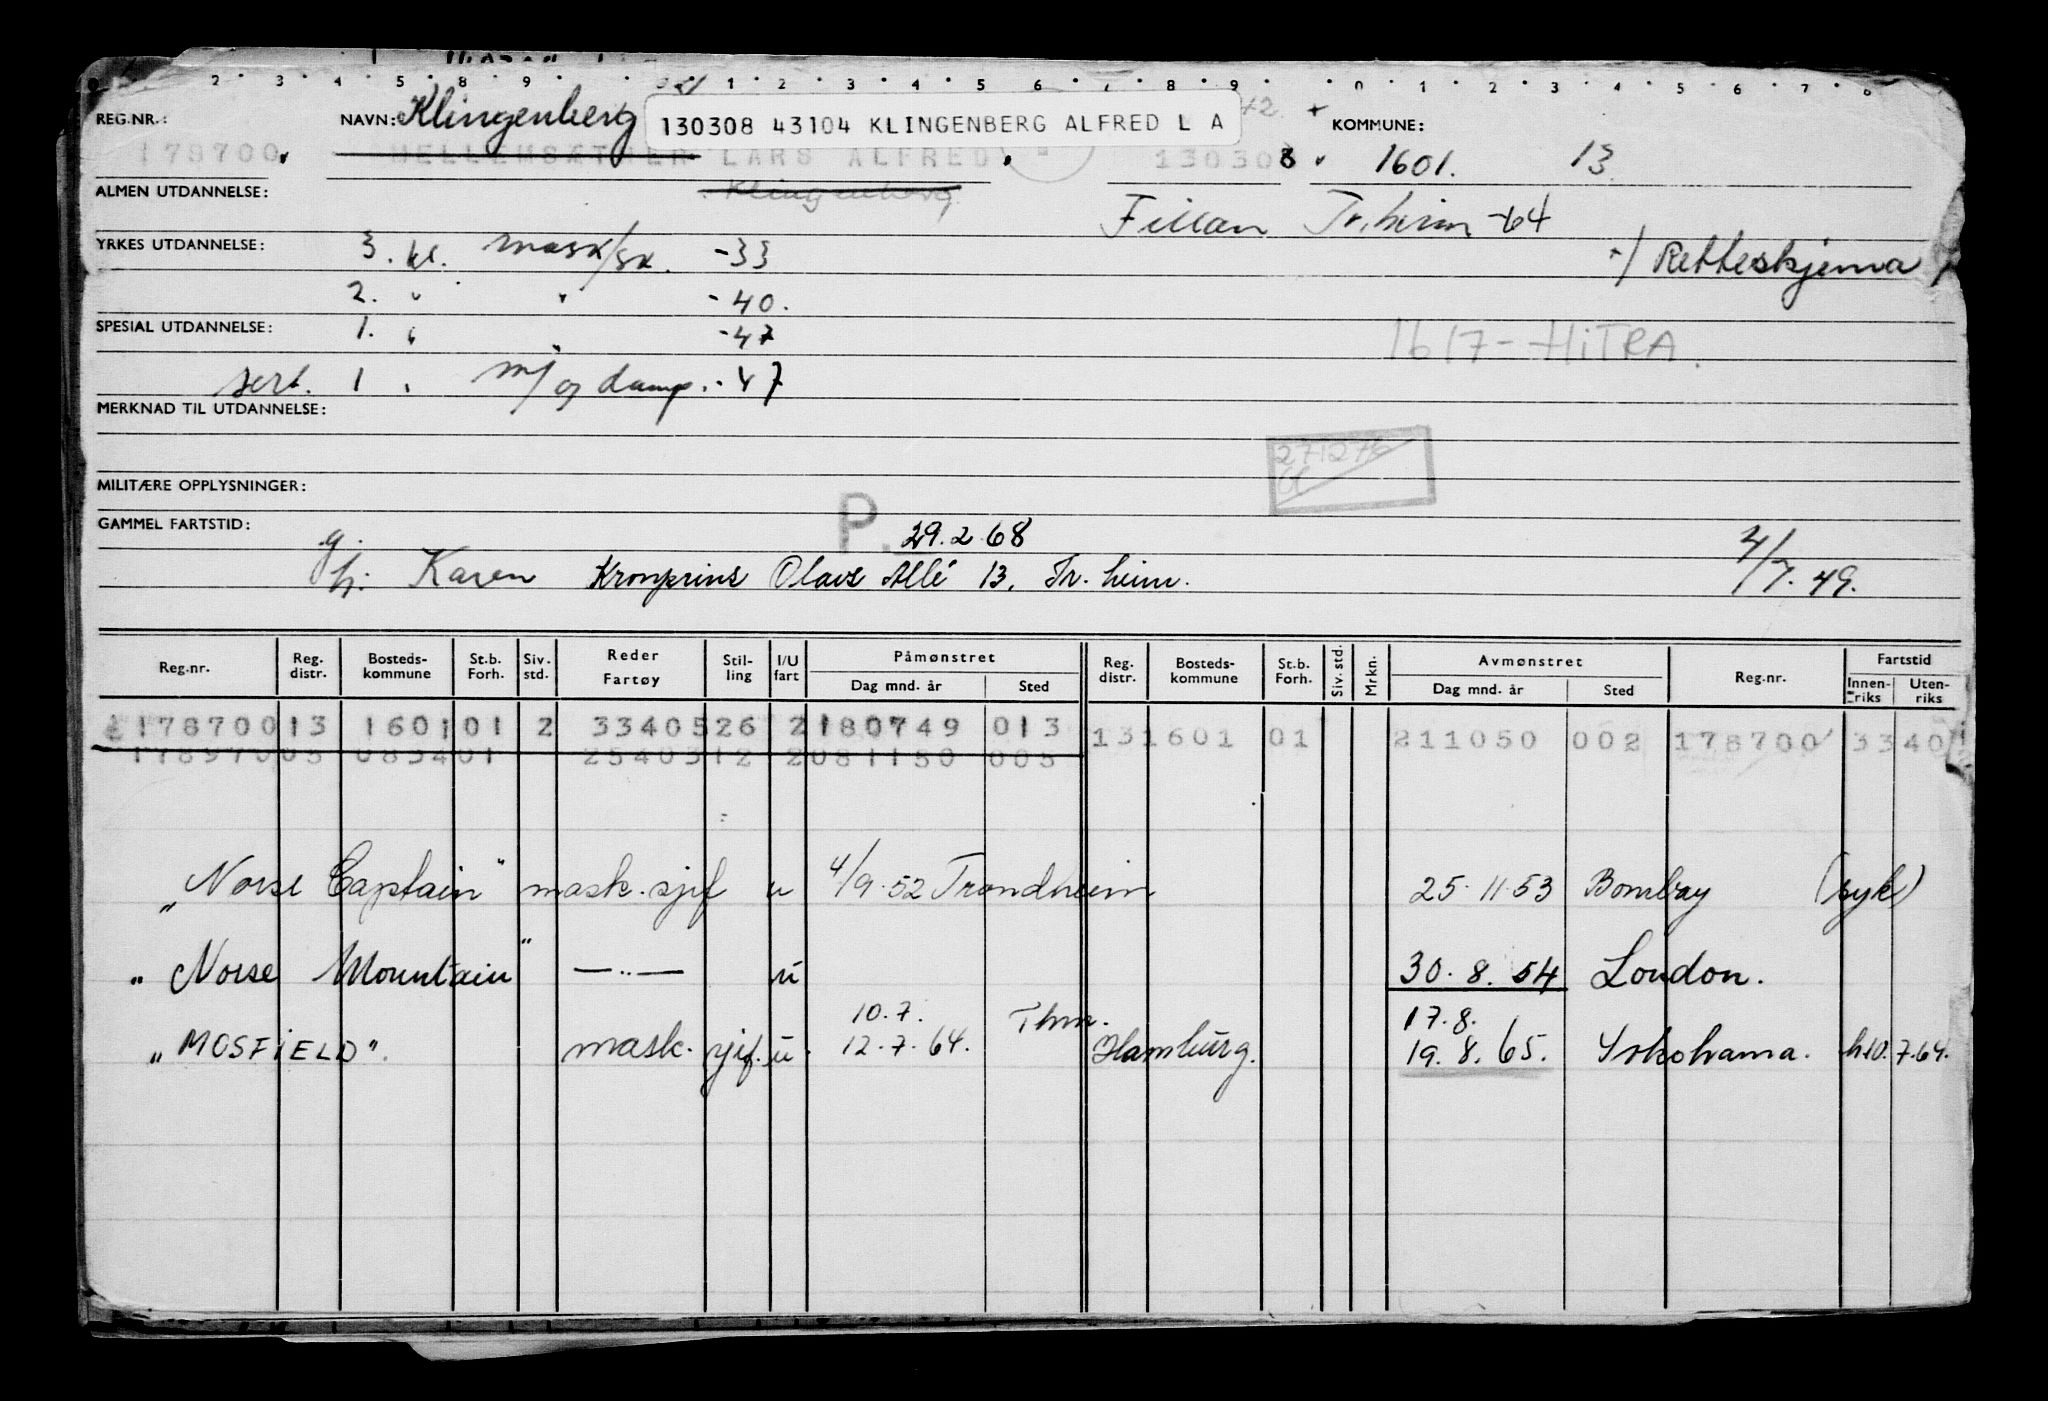 2 3 4 5 8 9 1 2 3 4 5 6 7 8 9 0 1 2 3 4 5 6 7 8
REG.NR.: NAVN: Klingenberg 130308 43104 KLINGENBERG ALFRED L A + KOMMUNE:
178700 HELLEMSÆTHER LARS ALFRED 130308 1601. 13
ALMEN UTDANNELSE: Klingenberg
Fillan Tr.heim -64
YRKES UTDANNELSE: 3. kl. mask/sk. -33 -/ Retteskjema
2. " " -40.
SPESIAL UTDANNELSE: 1. " " -47
1617-HITRA.
sert. 1 " m/ og damp. -47
MERKNAD TIL UTDANNELSE:
271276
MILITÆRE OPPLYSNINGER:
GAMMEL FARTSTID: P. 29.2.68
g. h. Karen Kronprins Olavs Allé 13, Tr.heim. 4/7.49.
Reg.nr. Reg. distr. Bosteds-kommune St.b. Forh. Siv. std. Reder Fartøy Stil-ling I/U fart Påmønstret Dag mnd. år Sted Reg. distr. Bosteds-kommune St.b. Forh. Siv. std. Mrkn. Avmønstret Dag mnd. år Sted Reg.nr. Fartstid Innen-riks Uten-riks
178700 13 1601 01 2 33405 26 2 180749 013 13 1601 01 211050 002 178700 33 40
178970 05 0834 01 25403 12 2 081150 005
"Norse Captain" mask. sjef u 4/9.52 Trondheim 25.11.53 Bombay (syk)
"Norse Mountain" —"— u 30.8.54 London.
10.7. Thm. 17.8.
"MOSFIELD". mask. sjef. u. 12.7.64. Hamburg. 19.8.65. Yokohama. h10.7.64.